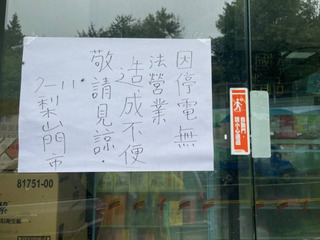 因停電無
法營業
造成不便
敬請見諒.
7-11梨山門市
81751-00